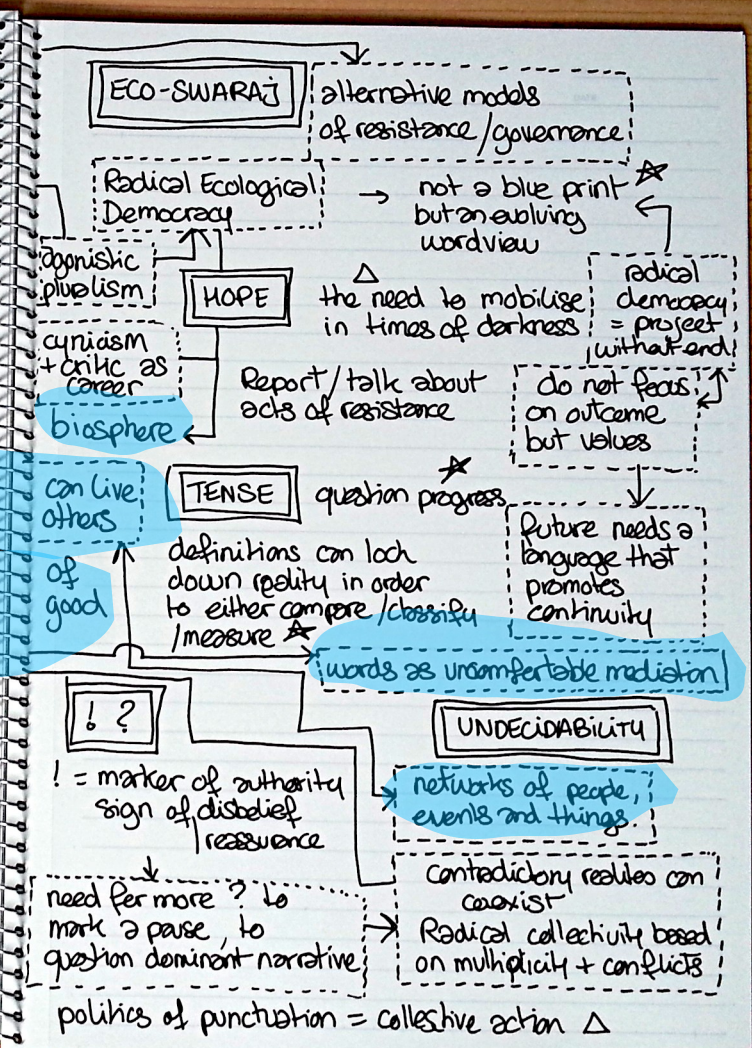 ECO-SWARAJ
alternative models
of resistance/governance
Radical Ecological
Democracy
not a blue print
but an evolving
wordview
agonistic
pluralism
HOPE
the need to mobilise
in times of darkness
radical
democracy
= project
without end
cynicism
+ critic as
career
biosphere
Report/talk about
acts of resistance
do not focus
on outcome
but values
can live
others
TENSE
question progress
of
good
definitions can lock
down reality in order
to either compare/classify
/measure
future needs a
language that
promotes
continuity
words as uncomfortable mediation
! ?
UNDECIDABILITY
! = marker of authority
sign of disbelief
/reassurence
networks of people,
events and things.
need for more ? to
mark a pause, to
question dominant narrative
contradictory realites can
coexist
Radical collectivity based
on multiplicity + conflicts
politics of punctuation = collective action △